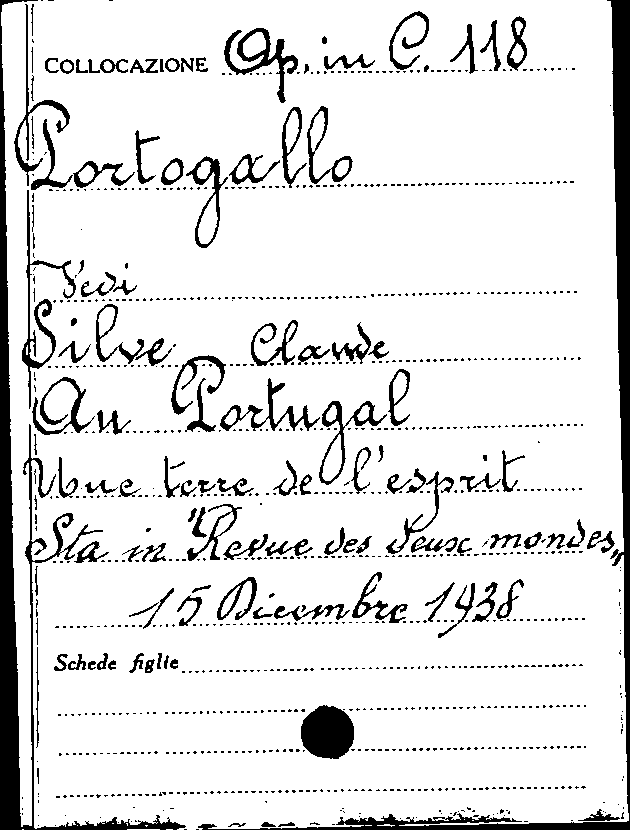 COLLOCAZIONE Op. in C. 118
Portogallo
Vedi
Silve Claude
Au Portugal
Une terre de l'esprit
Sta in "Revue des deux mondes„
15 Dicembre 1938
Schede figlie